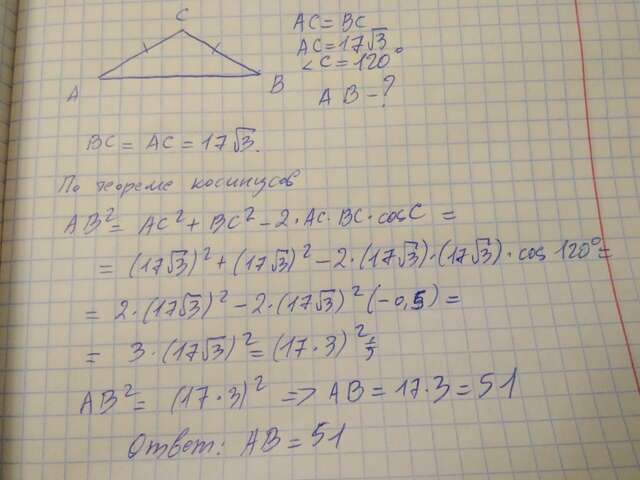 C
A
B
AC = BC
AC = 17√3
∠C = 120°
AB - ?
BC = AC = 17√3.
По теореме косинусов
AB² = AC² + BC² - 2·AC·BC·cosC =
= (17√3)² + (17√3)² - 2·(17√3)·(17√3)·cos 120° =
= 2·(17√3)² - 2·(17√3)²(-0,5) =
= 3·(17√3)² = (17·3)²
AB² = (17·3)² => AB = 17·3 = 51
Ответ: AB = 51